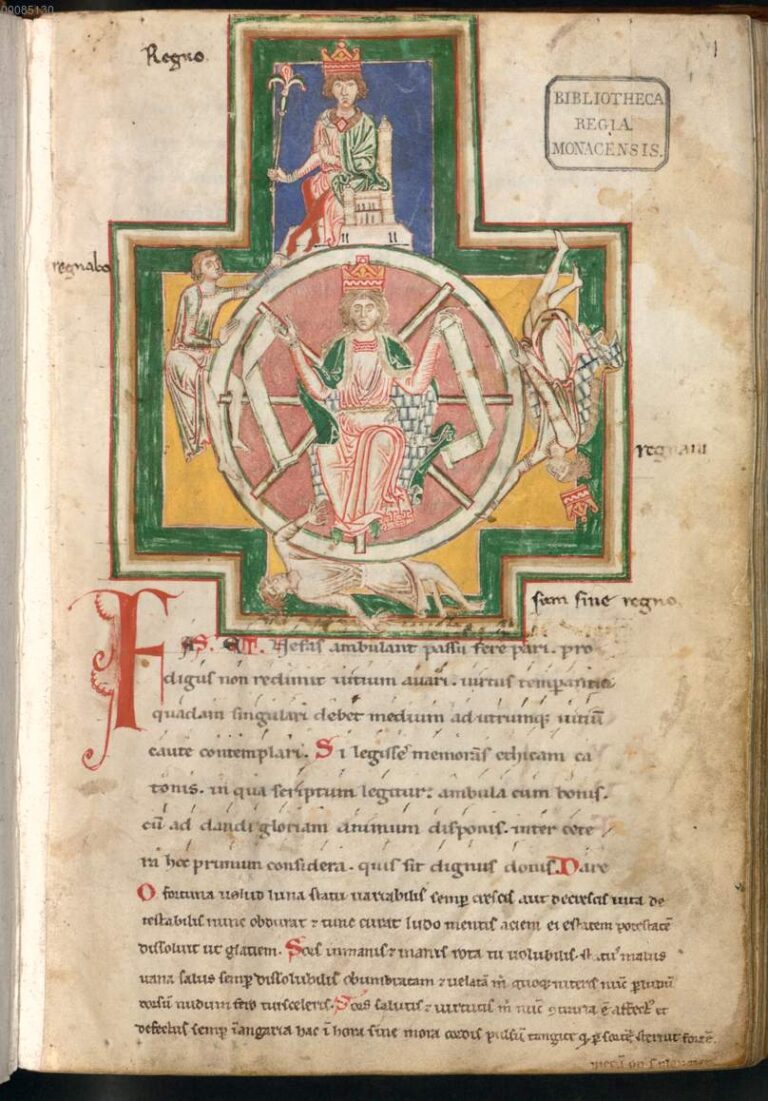 00085130
Regno
1
BIBLIOTHECA
REGIA
MONACENSIS.
regnabo
regnaui
sum sine regno
FAS. ET. Nefas ambulant passu fere pari. pro
digus non redimit uitium auari. uirtus temperantia
quadam singulari debet medium ad utrumq; uitiū
caute contemplari. Si legisse memoras ethicam ca
tonis. in qua scriptum legitur: ambula cum bonis.
cū ad dandi gloriam animum disponis. inter cete
ra hoc primum considera. quis sit dignus donis. Dare
O fortuna uelud luna statu uariabilis semp crescis aut decrescis uita de
testabilis nunc obdurat ⁊ tunc curat ludo mentis aciem egestatem potestatē
dissoluit ut glatiem. Sors inmanis ⁊ inanis rota tu uolubilis. statꝰ malus
uana salus semp dissolubilis obumbratam ⁊ uelatā m quoq; niteris nūc p ludū
dorsū nudum fero tui sceleris. Sors salutis ⁊ uirtutis m nunc ē affectꝰ et
defectus semp ī angaria hac ī hora sine mora cordis pulsū tangite q p sortē sternit fortē.